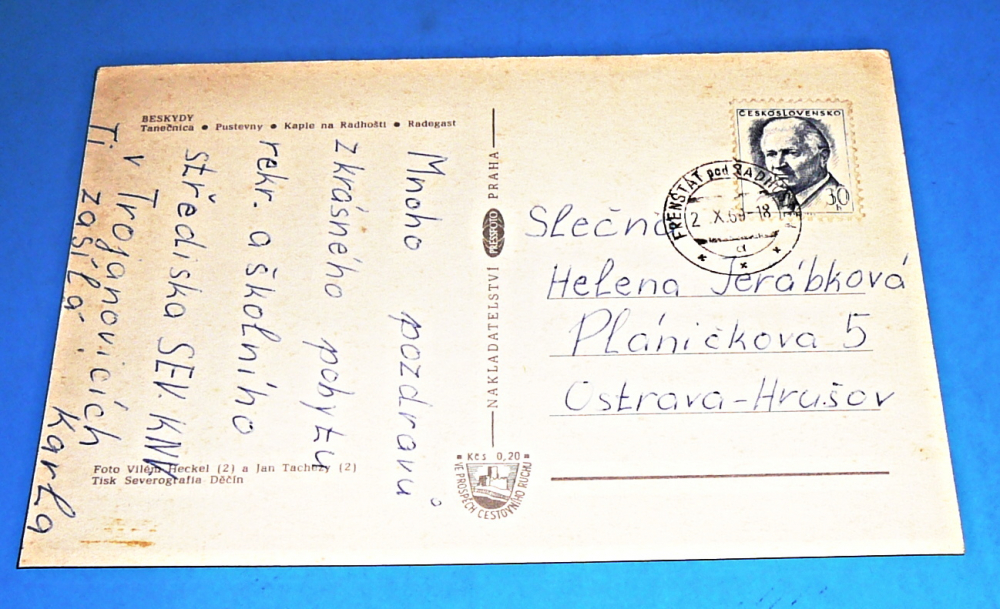 BESKYDY
Tanečnica • Pustevny • Kaple na Radhošti • Radegast
Mnoho pozdravů
zkrásného pobytu
rekr. a školního
střediska SEV. KNV
v Trojanovicích
Ti zasílá:
Karla
Foto Vilém Heckel (2) a Jan Tachezy (2)
Tisk Severografia Děčín
NAKLADATELSTVÍ PRESSFOTO PRAHA
Kčs 0,20
VE PROSPĚCH CESTOVNÍHO RUCHU
ČESKOSLOVENSKO
30 h
FRENŠTÁT pod RADHOŠTĚM
X.69-18
a
Slečna
Helena Jeřábková
Pláničkova 5
Ostrava-Hrušov